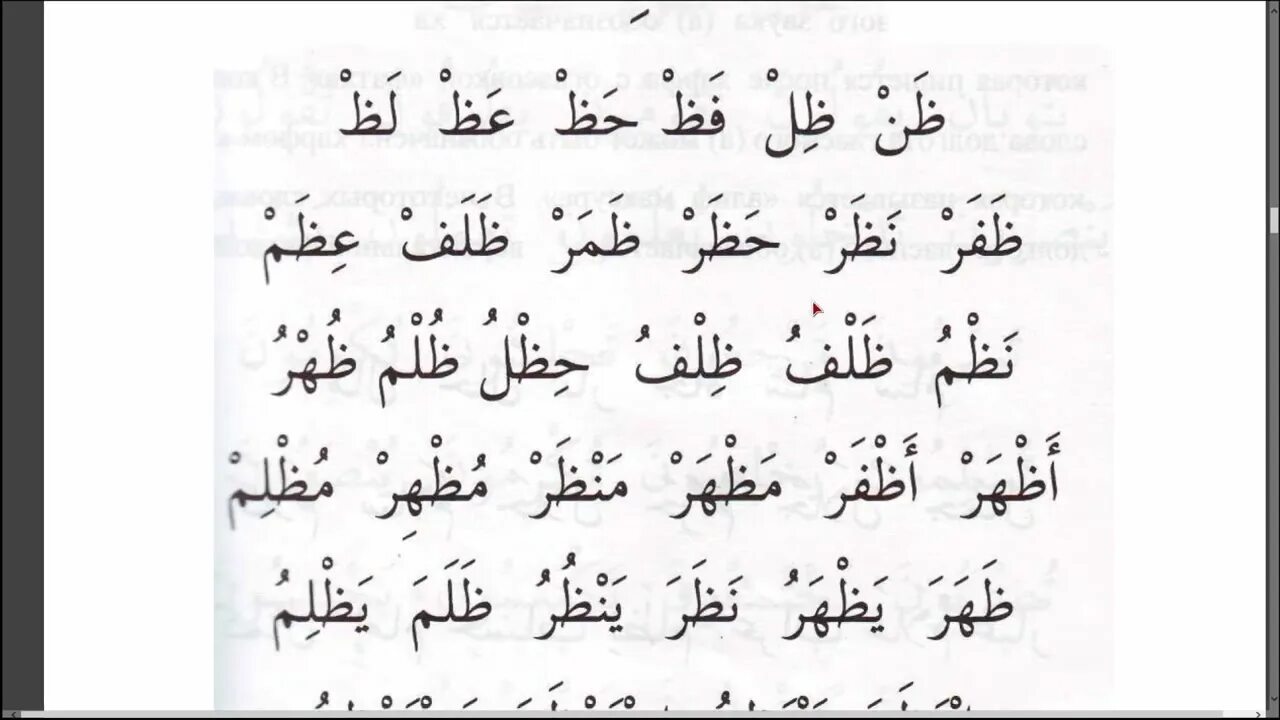 ظَنْ ظِلْ فَظْ حَظْ عَظْ لَظْ
ظَفَرْ نَظَرْ حَظَرْ ظَمَرْ ظَلَفْ عِظَمْ
نَظْمُ ظَلْفُ ظِلْفُ حِظْلُ ظُلْمُ ظُهْرُ
أَظْهَرْ أَظْفَرْ مَظْهَرْ مَنْظَرْ مُظْهِرْ مُظْلِمْ
ظَهَرَ يَظْهَرُ نَظَرَ يَنْظُرُ ظَلَمَ يَظْلِمُ